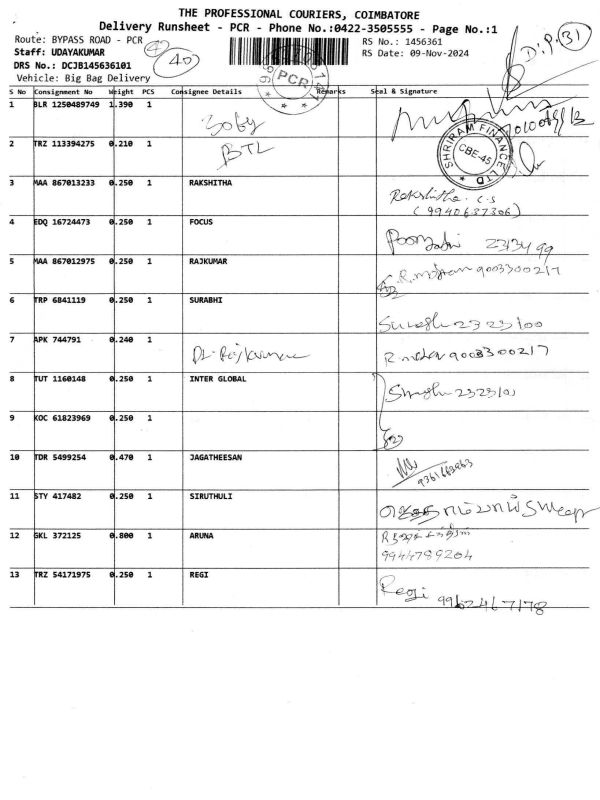 THE PROFESSIONAL COURIERS, COIMBATORE
Delivery Runsheet - PCR - Phone No.:0422-3505555 - Page No.:1
Route: BYPASS ROAD - PCR
RS No.: 1456361
D.P. 31
Staff: UDAYAKUMAR
40
RS Date: 09-Nov-2024
DRS No.: DCJB145636101
Vehicle: Big Bag Delivery
PCR
S No Consignment No Weight PCS Consignee Details Remarks Seal & Signature
1 BLR 1250489749 1.390 1
2 TRZ 113394275 0.210 1 BTL
SHRIRAM FINANCE LTD
CBE-45
3 MAA 867013233 0.250 1 RAKSHITHA Rakshitha. C.S
(9940637306)
4 EDQ 16724473 0.250 1 FOCUS 2323499
5 MAA 867012975 0.250 1 RAJKUMAR R.mohan 9003300217
6 TRP 6841119 0.250 1 SURABHI 2323100
7 APK 744791 0.240 1 Dr. Rajkumar R.mohan 9003300217
8 TUT 1160148 0.250 1 INTER GLOBAL 2323101
9 KOC 61823969 0.250 1
10 TDR 5499254 0.470 1 JAGATHEESAN
11 STY 417482 0.250 1 SIRUTHULI
12 GKL 372125 0.800 1 ARUNA
9944789204
13 TRZ 54171975 0.250 1 REGI Regi